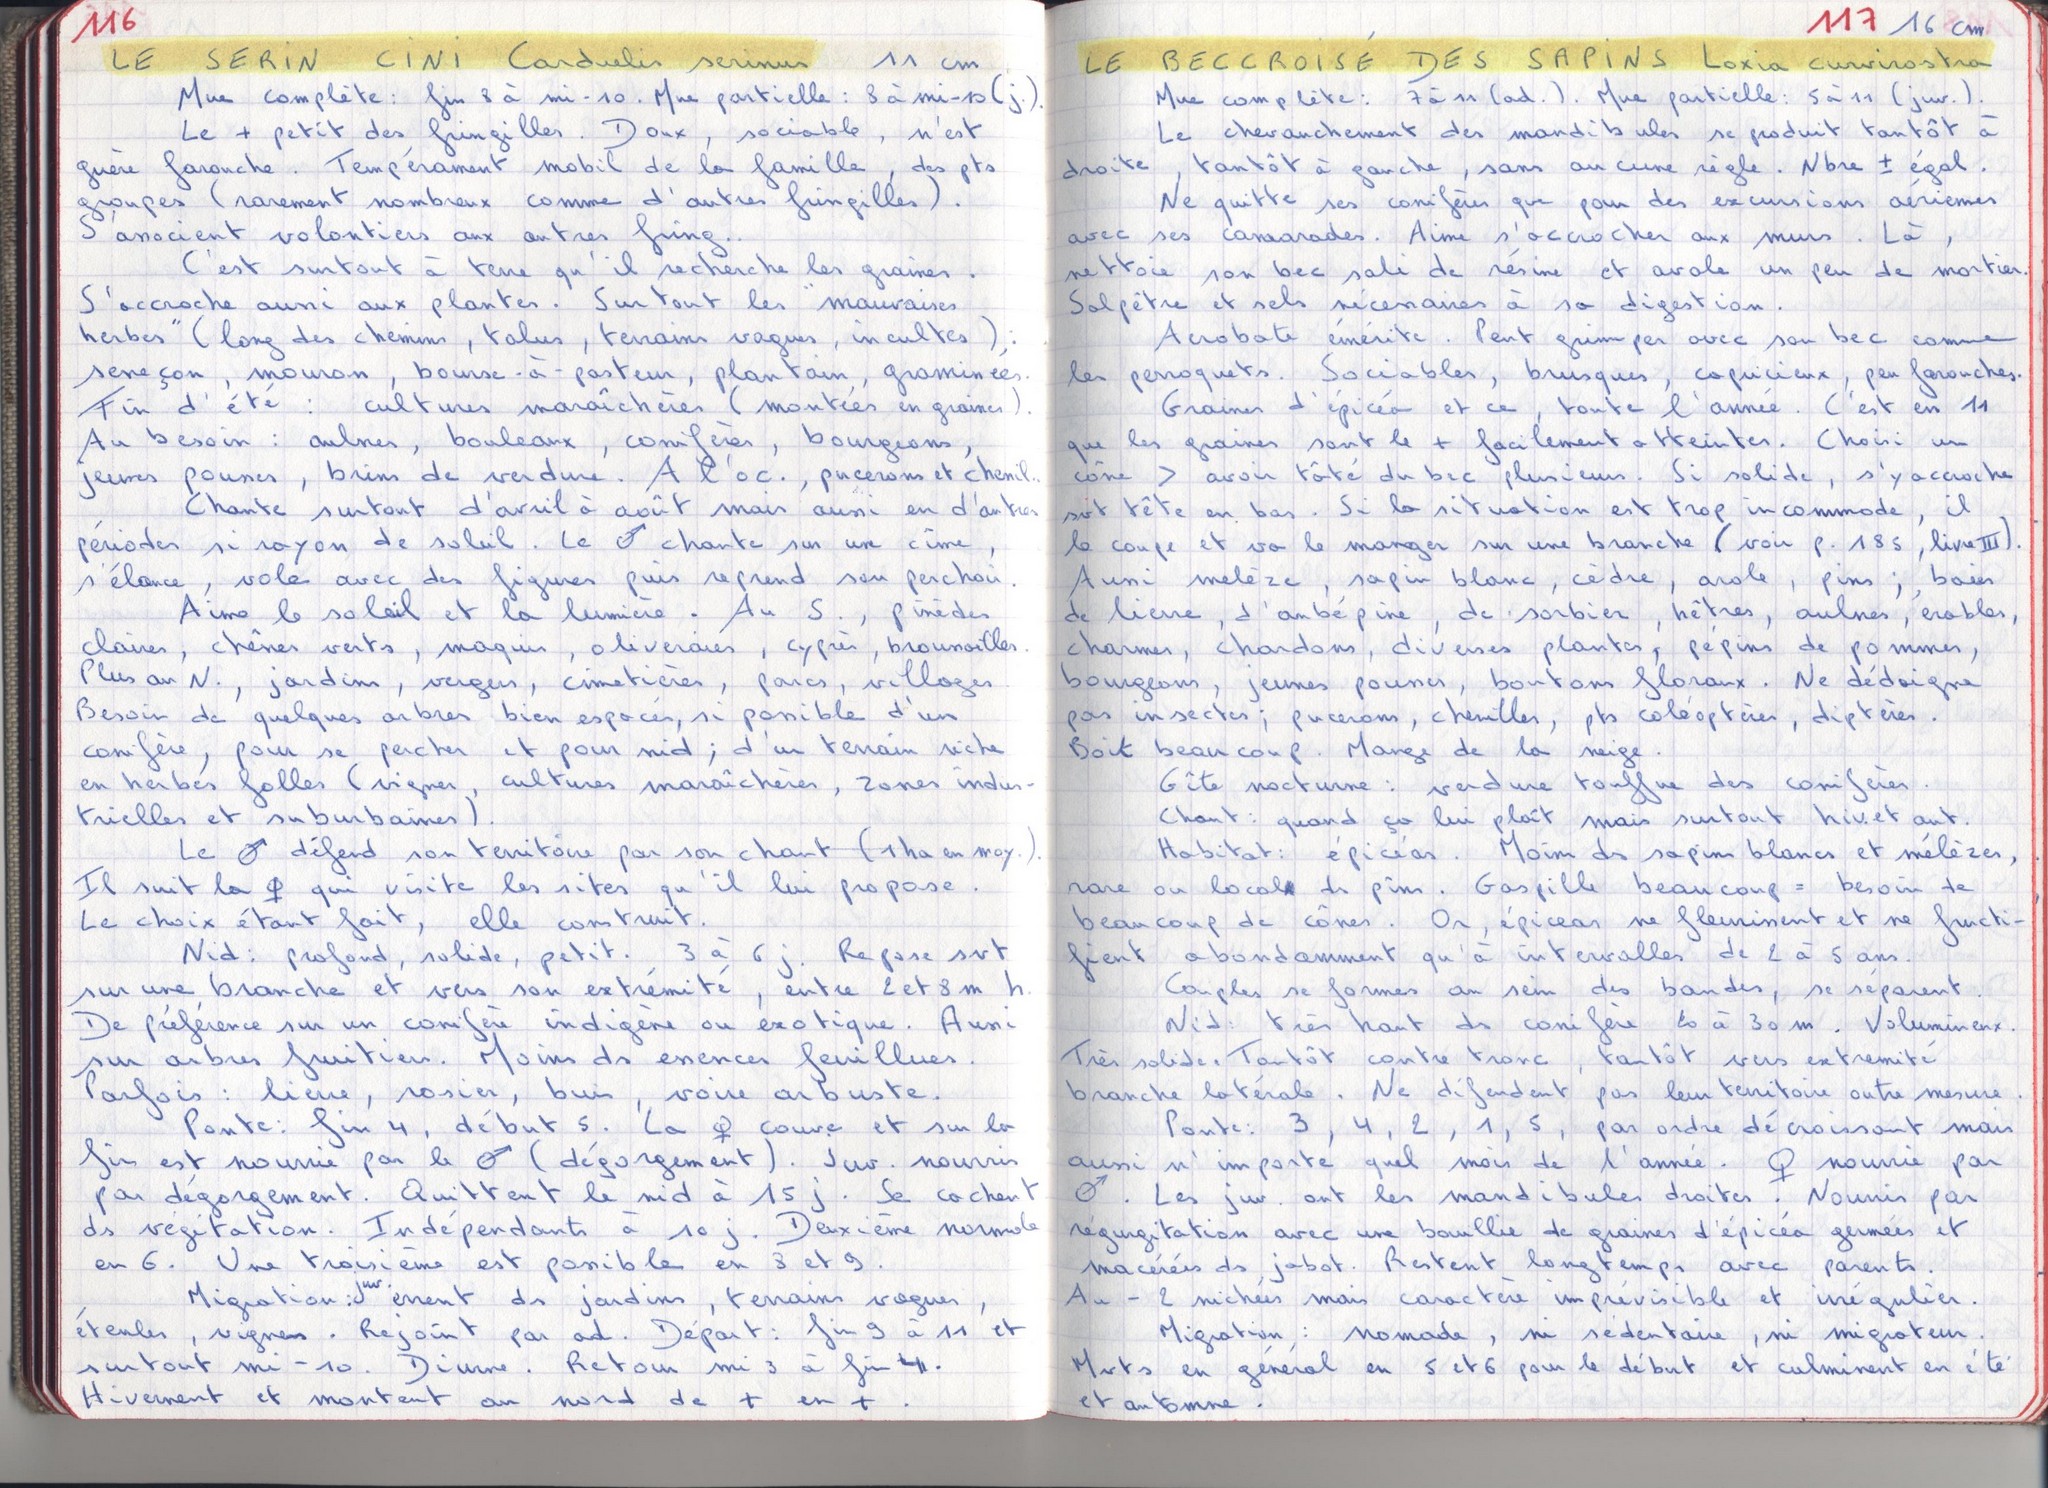 116
LE SERIN CINI Carduelis serinus 11 cm
Mue complète : fin 8 à mi-10. Mue partielle : 8 à mi-10 (j.).
Le + petit des fringilles. Doux, sociable, n'est
guère farouche. Tempérament mobil de la famille, des pts
groupes (rarement nombreux comme d'autres fringilles).
S'associent volontiers aux autres fring..
C'est surtout à terre qu'il recherche les graines.
S'accroche aussi aux plantes. Surtout les "mauvaises
herbes" (long des chemins, talus, terrains vagues, incultes) :
seneçon, mouron, bourse-à-pasteur, plantain, graminées.
Fin d'été : cultures maraîchères (montées en graines).
Au besoin : aulnes, bouleaux, conifères, bourgeons,
jeunes pousses, brins de verdure. A l'oc., pucerons et chenil..
Chante surtout d'avril à août mais aussi en d'autres
périodes si rayon de soleil. Le ♂ chante sur une cîme,
s'élance, vole avec des figures puis reprend son perchoir.
Aime le soleil et la lumière. Au S., pinèdes
claires, chênes verts, maquis, oliveraies, cyprès, brousailles.
Plus au N., jardins, vergers, cimetières, parcs, villages.
Besoin de quelques arbres bien espacés, si possible d'un
conifère, pour se percher et pour nid ; d'un terrain riche
en herbes folles (vignes, cultures maraîchères, zones indus-
trielles et suburbaines).
Le ♂ défend son territoire par son chant (1 ha en moy.).
Il suit la ♀ qui visite les sites qu'il lui propose.
Le choix étant fait, elle construit.
Nid : profond, solide, petit. 3 à 6 j. Repose svt
sur une branche et vers son extrémité, entre 2 et 8 m h.
De préférence sur un conifère indigène ou exotique. Aussi
sur arbres fruitiers. Moins ds essences feuillues.
Parfois : lierre, rosier, buis, voire arbuste.
Ponte : fin 4, début 5. La ♀ couve et sur la
fin est nourrie par le ♂ (dégorgement). Juv. nourris
par dégorgement. Quittent le nid à 15 j. Se cachent
ds végétation. Indépendants à 10 j. Deuxième normale
en 6. Une troisième est possible en 8 et 9.
Migration : juv. errent ds jardins, terrains vagues,
éteules, vignes. Rejoint par ad. Départ : fin 9 à 11 et
surtout mi-10. Diurne. Retour mi 3 à fin 4.
Hivernent et montent au nord de + en +.
117 16 cm
LE BECCROISÉ DES SAPINS Loxia curvirostra
Mue complète : 7 à 11 (ad.). Mue partielle : 5 à 11 (juv.).
Le chevauchement des mandibules se produit tantôt à
droite, tantôt à gauche, sans aucune règle. Nbre ± égal.
Ne quitte ses conifères que pour des excursions aériennes
avec ses camarades. Aime s'accrocher aux murs. Là,
nettoie son bec sali de résine et avale un peu de mortier.
Salpêtre et sels nécessaires à sa digestion.
Acrobate émérite. Peut grimper avec son bec comme
les perroquets. Sociables, brusques, capricieux, peu farouches.
Graines d'épicéa et ce, toute l'année. C'est en 11
que les graines sont le + facilement atteintes. Choisi un
cône > avoir tâté du bec plusieurs. Si solide, s'y accroche
svt tête en bas. Si la situation est trop incommode, il
le coupe et va le manger sur une branche (voir p. 185, livre III).
Aussi mélèze, sapin blanc, cèdre, arole, pins ; baies
de lierre, d'aubépine, de sorbier, hêtres, aulnes, érables,
charmes, chardons, diverses plantes, pépins de pommes,
bourgeons, jeunes pousses, boutons floraux. Ne dédaigne
pas insectes ; pucerons, chenilles, pts coléoptères, diptères.
Boit beaucoup. Mange de la neige.
Gîte nocturne : verdure touffue des conifères.
Chant : quand ça lui plaît mais surtout hiv. et aut.
Habitat : épicéas. Moins ds sapins blancs et mélèzes,
rare ou local ds pins. Gaspille beaucoup = besoin de
beaucoup de cônes. Or, épiceas ne fleurissent et ne fructi-
fient abondamment qu'à intervalles de 2 à 5 ans.
Couples se formes au sein des bandes, se séparent.
Nid : très haut ds conifère 20 à 30 m. Volumineux.
Très solide. Tantôt contre tronc, tantôt vers extremité
branche latérale. Ne défendent pas leur territoire outre mesure.
Ponte : 3, 4, 2, 1, 5, par ordre décroissant mais
aussi n'importe quel mois de l'année. ♀ nourrie par
♂. Les juv. ont les mandibules droites. Nourris par
régurgitation avec une bouillie de graines d'épicéa germées et
macérées ds jabot. Restent longtemps avec parents.
Au - 2 nichées mais caractère imprévisible et irrégulier.
Migration : nomade, ni sédentaire, ni migrateur.
Mvts en général en 5 et 6 pour le début et culminent en été
et automne.